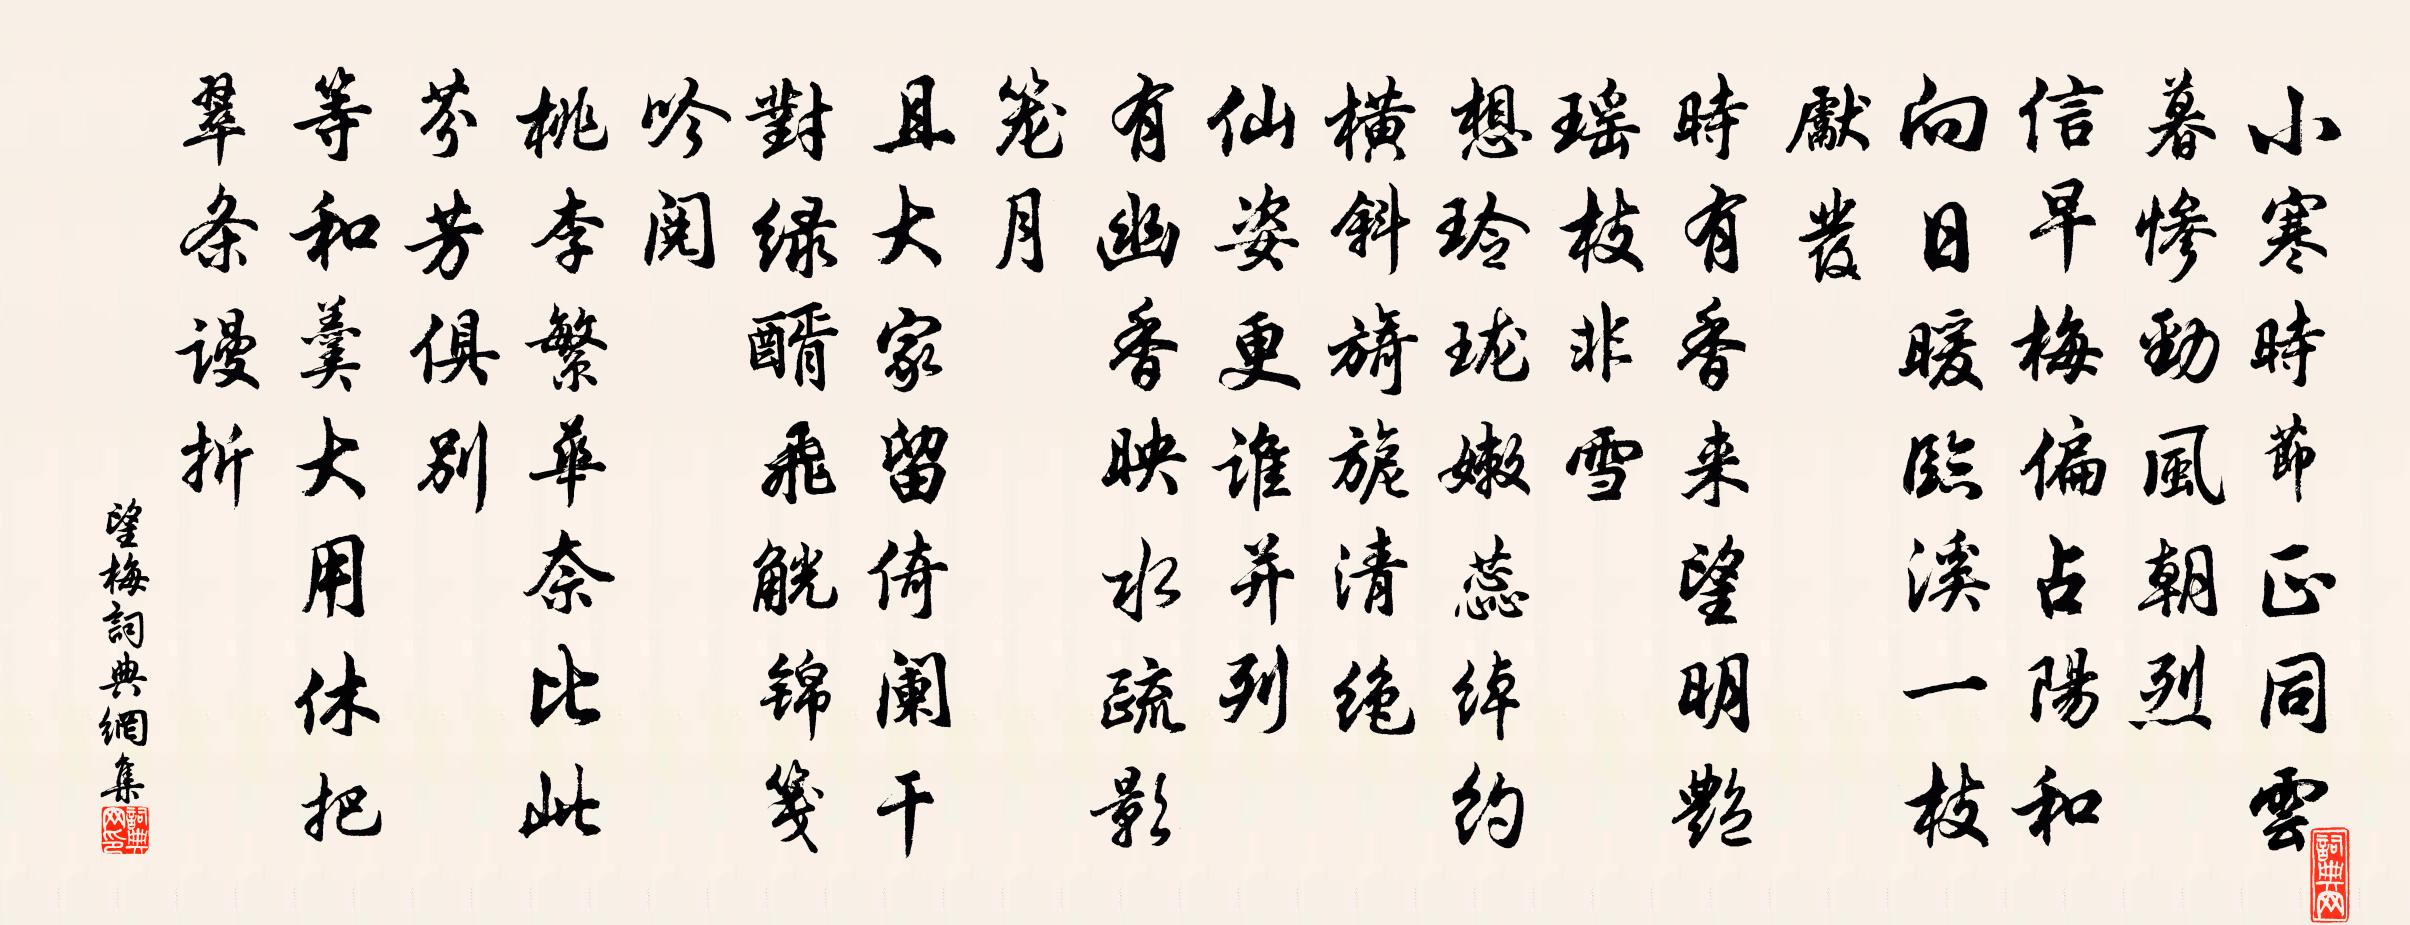 小寒時節正同雲
暮慘勁風朝烈
信早梅偏占陽和
向日暖臨溪一枝
獻發
時有香来望明艷
瑶枝非雪
想玲珑嫩蕊绰约
横斜旖旎清绝
仙姿更谁并列
有幽香映水疏影
笼月
且大家留倚阑干
對绿醑飛觥锦笺
吟阅
桃李繁華奈比此
芬芳俱别
等和羹大用休把
翠条谩折
望梅詞典網集
詞典网印
詞典网